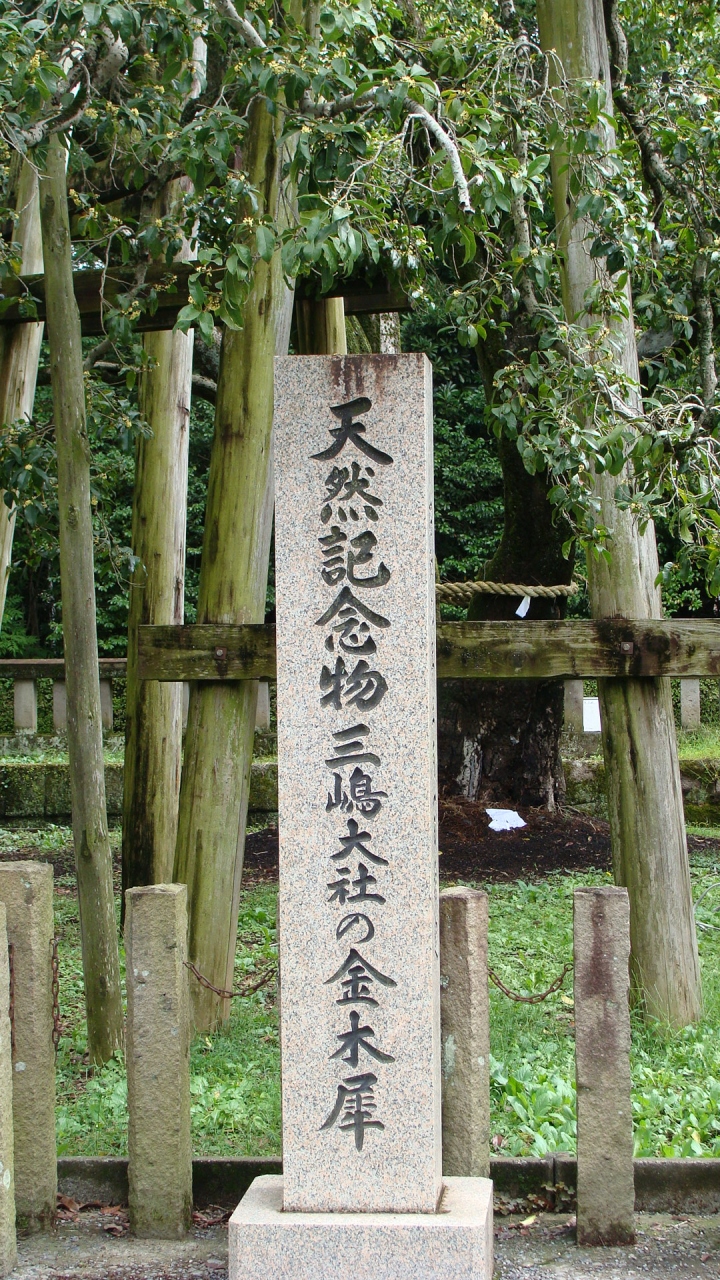 天然記念物三嶋大社の金木犀